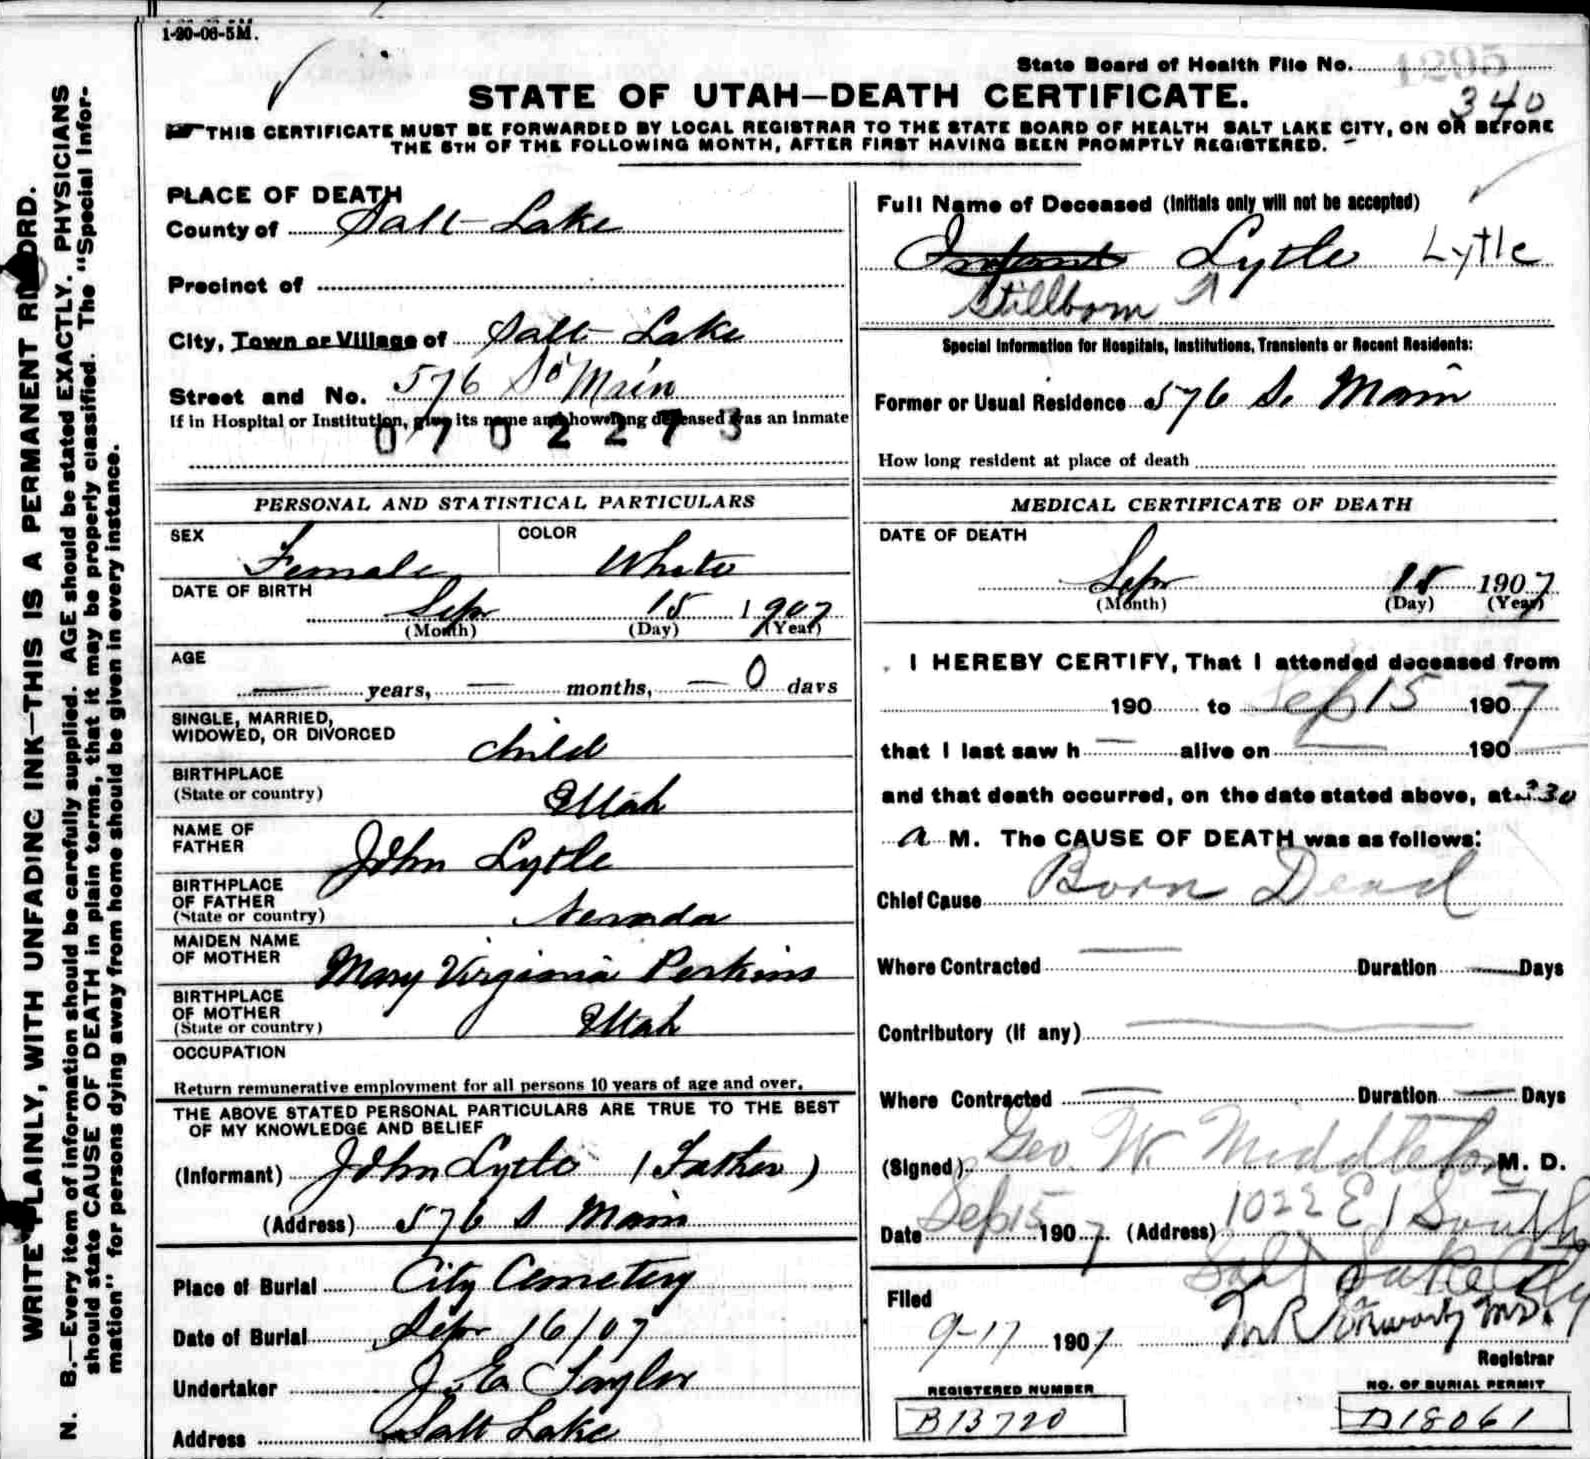 1-20-06-5M.
State Board of Health File No. 1295
340
STATE OF UTAH—DEATH CERTIFICATE.
THIS CERTIFICATE MUST BE FORWARDED BY LOCAL REGISTRAR TO THE STATE BOARD OF HEALTH SALT LAKE CITY, ON OR BEFORE
THE 5TH OF THE FOLLOWING MONTH, AFTER FIRST HAVING BEEN PROMPTLY REGISTERED.
WRITE PLAINLY, WITH UNFADING INK—THIS IS A PERMANENT RECORD.
N. B.—Every item of information should be carefully supplied. AGE should be stated EXACTLY. PHYSICIANS
should state CAUSE OF DEATH in plain terms, that it may be properly classified. The "Special Infor-
mation" for persons dying away from home should be given in every instance.
PLACE OF DEATH
County of Salt Lake
Precinct of
City, Town or Village of Salt Lake
Street and No. 576 So Main
If in Hospital or Institution, give its name and how long deceased was an inmate
0702273
PERSONAL AND STATISTICAL PARTICULARS
SEX Female COLOR White
DATE OF BIRTH
Sepr 15 1907
(Month) (Day) (Year)
AGE
— years, — months, — 0 days
SINGLE, MARRIED,
WIDOWED, OR DIVORCED child
BIRTHPLACE
(State or country) Utah
NAME OF
FATHER John Lytle
BIRTHPLACE
OF FATHER
(State or country) Nevada
MAIDEN NAME
OF MOTHER Mary Virginia Perkins
BIRTHPLACE
OF MOTHER
(State or country) Utah
OCCUPATION
Return remunerative employment for all persons 10 years of age and over.
THE ABOVE STATED PERSONAL PARTICULARS ARE TRUE TO THE BEST
OF MY KNOWLEDGE AND BELIEF
(Informant) John Lytle (Father)
(Address) 576 S Main
Place of Burial City Cemetery
Date of Burial Sepr 16/07
Undertaker J. E Taylor
Address Salt Lake
Full Name of Deceased (Initials only will not be accepted)
Infant Lytle Lytle
Stillborn
Special Information for Hospitals, Institutions, Transients or Recent Residents:
Former or Usual Residence 576 S. Main
How long resident at place of death
MEDICAL CERTIFICATE OF DEATH
DATE OF DEATH
Sepr 15 1907
(Month) (Day) (Year)
I HEREBY CERTIFY, That I attended deceased from
190 to Sep 15 1907
that I last saw h — alive on — 190
and that death occurred, on the date stated above, at 30
a M. The CAUSE OF DEATH was as follows:
Chief Cause Born Dead
Where Contracted — Duration — Days
Contributory (if any) —
Where Contracted — Duration — Days
(Signed) Geo. W. Middleton M. D.
Date Sep 15 1907. (Address) 1022 E 1 South
Salt Lake City
Filed
9-17 1907 M.D.
Registrar
REGISTERED NUMBER
B13720
NO. OF BURIAL PERMIT
D18061